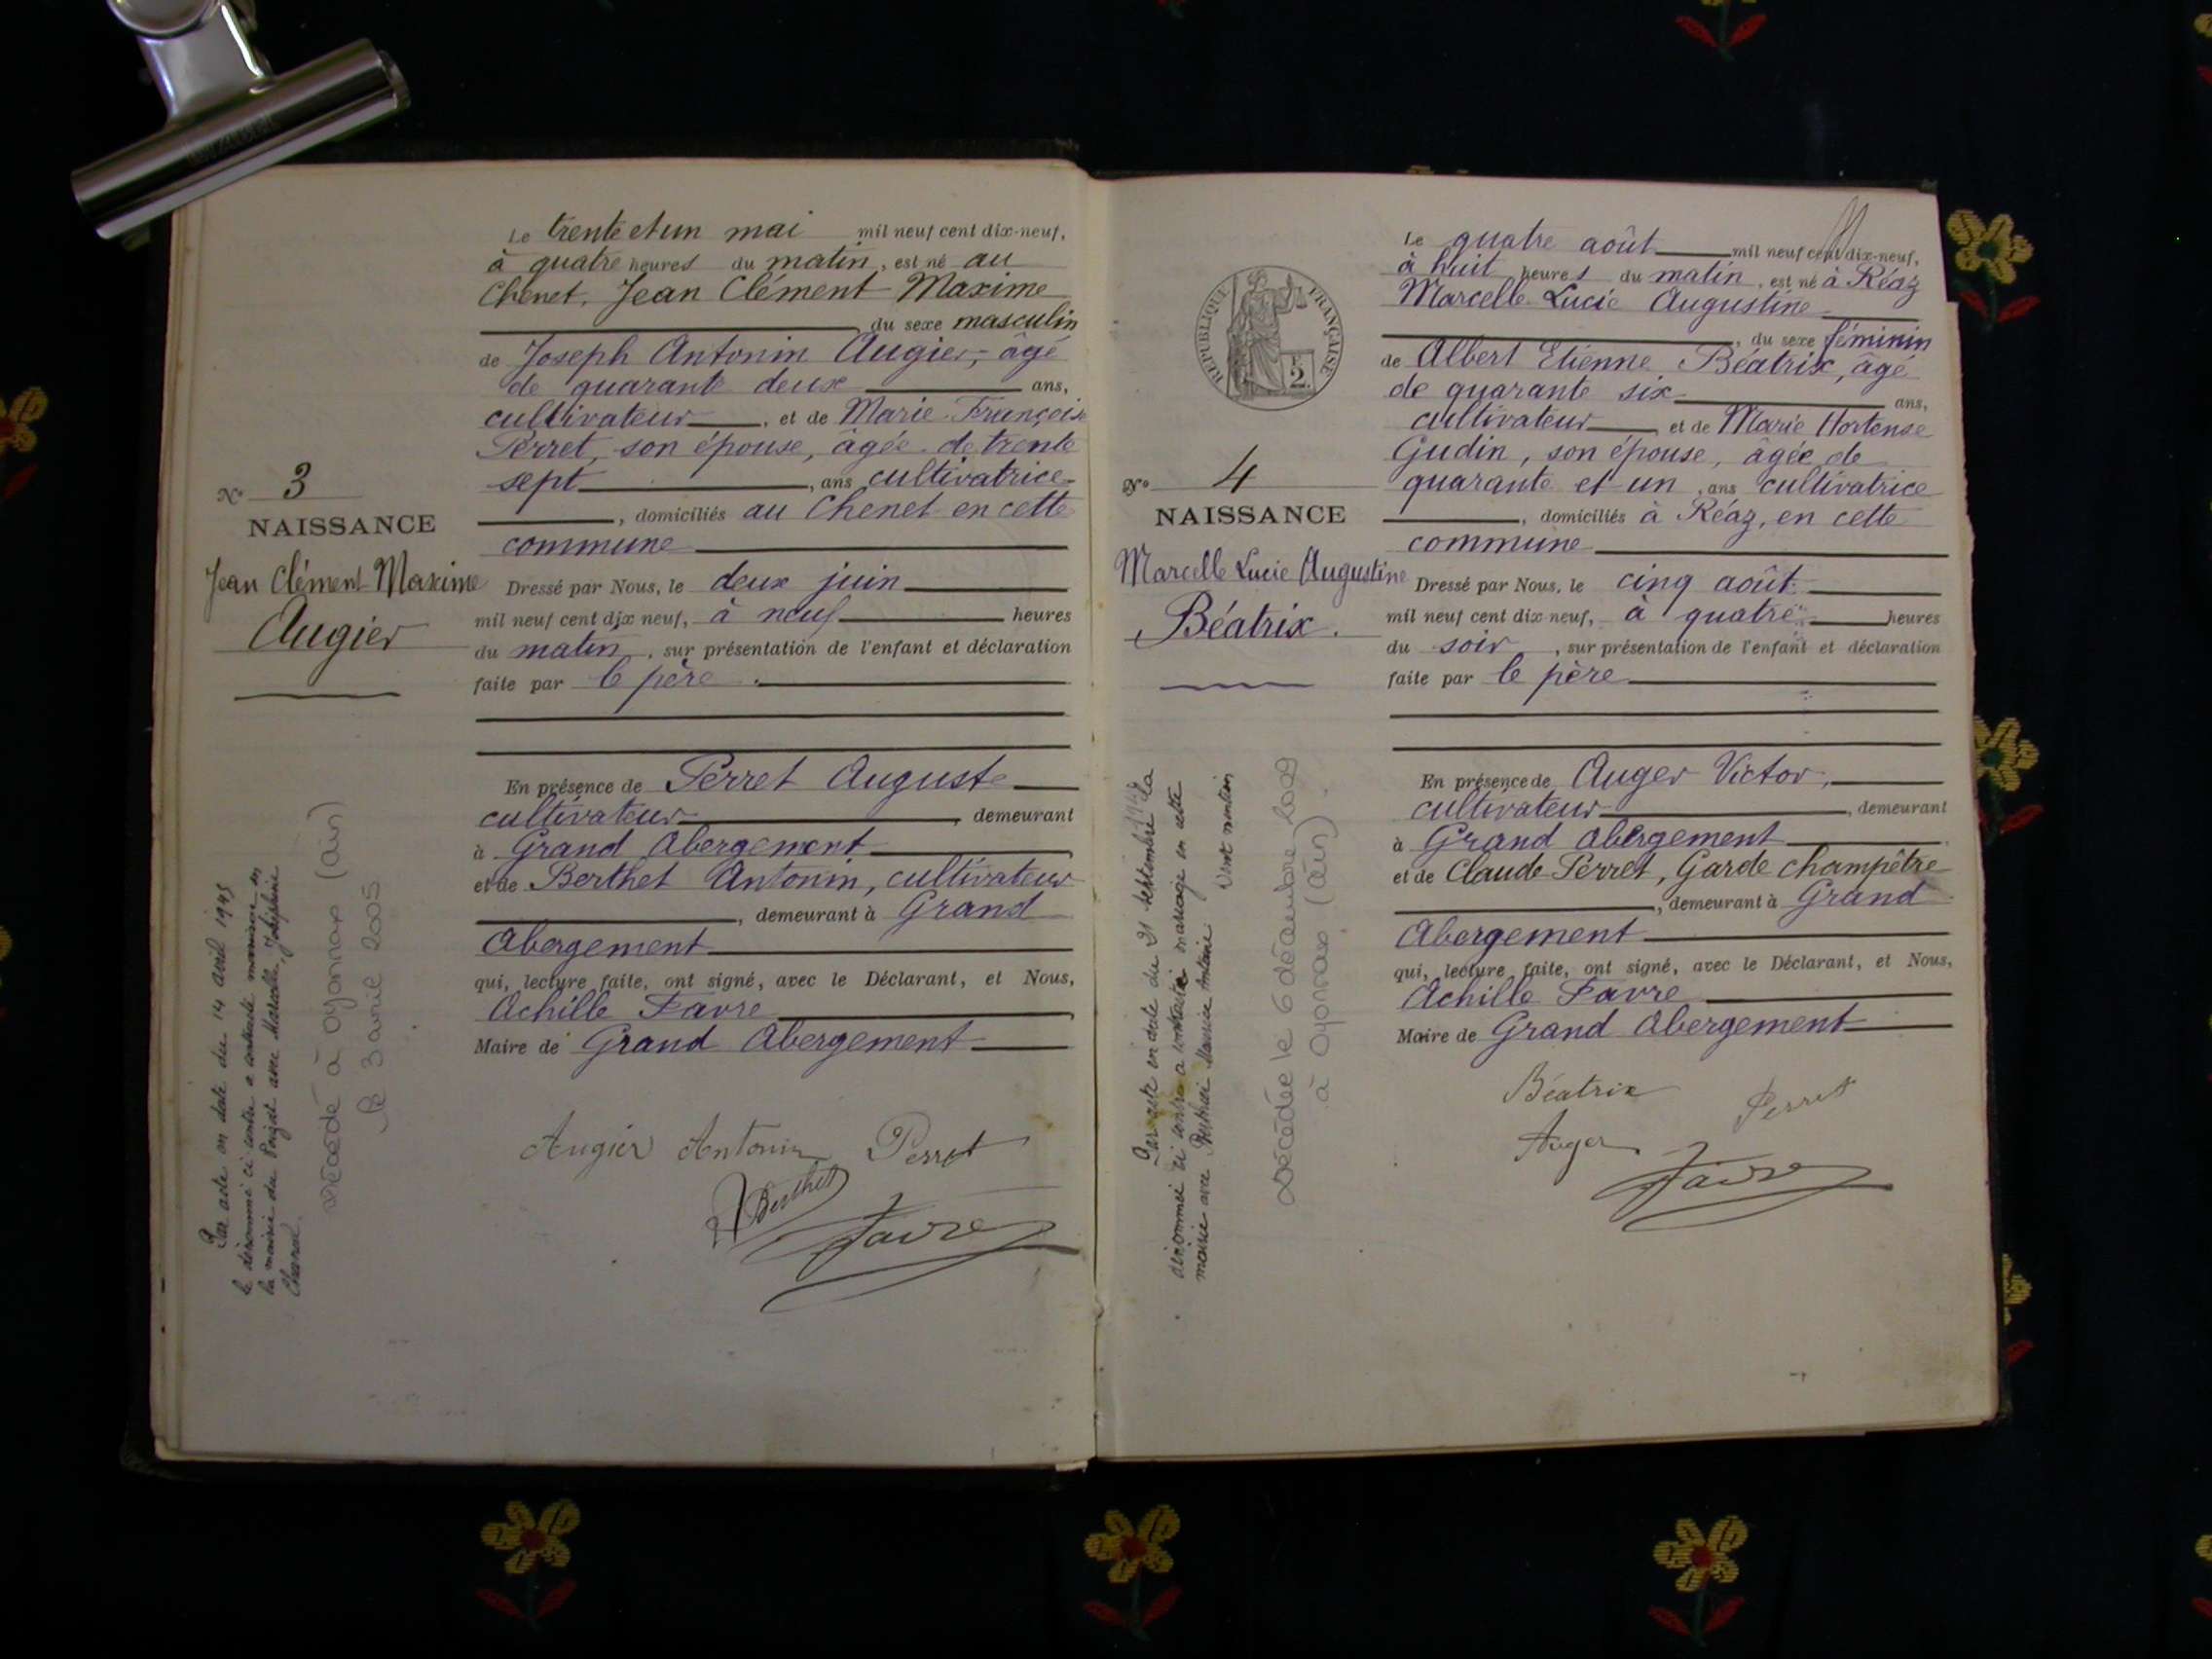 Le trente et un mai mil neuf cent dix-neuf,
à quatre heures du matin, est né au
Chenet, Jean Clément Maxime
, du sexe masculin
de Joseph Antonin Augier, âgé
de quarante deux ans,
cultivateur, et de Marie Françoise
Perret, son épouse, âgée de trente
sept, ans cultivatrice
, domiciliés au Chenet en cette
commune
No 3
NAISSANCE
Jean Clément Maxime
Augier
Dressé par Nous, le deux juin
mil neuf cent dix neuf, à neuf heures
du matin, sur présentation de l'enfant et déclaration
faite par le père.
En présence de Perret Auguste
cultivateur, demeurant
à Grand Abergement
et de Berthet Antonin, cultivateur
, demeurant à Grand
Abergement
qui, lecture faite, ont signé, avec le Déclarant, et Nous,
Achille Favre
Maire de Grand Abergement
Augier Antonin Perret
Berthet
Favre
Par acte en date du 14 avril 1945
le dénommé ci contre a contracté en
la mairie du avec Marcelle, Joséphine
Décédé à Oyonnax (Ain)
le 3 avril 2005
RÉPUBLIQUE FRANÇAISE
2 F.
Le quatre août mil neuf cent dix-neuf,
à huit heures du matin, est né à Réaz
Marcelle Lucie Augustine
, du sexe féminin
de Albert Etienne Béatrix, âgé
de quarante six ans,
cultivateur, et de Marie Hortense
Gudin, son épouse, âgée de
quarante et un, ans cultivatrice
, domiciliés à Réaz, en cette
commune
No 4
NAISSANCE
Marcelle Lucie Augustine
Béatrix.
Dressé par Nous, le cinq août
mil neuf cent dix neuf, à quatre heures
du soir, sur présentation de l'enfant et déclaration
faite par le père
En présence de Auger Victor,
cultivateur, demeurant
à Grand Abergement
et de Claude Perret, Garde champêtre
, demeurant à Grand
Abergement
qui, lecture faite, ont signé, avec le Déclarant, et Nous,
Achille Favre
Maire de Grand Abergement
Béatrix Perret
Auger
Favre
Par acte en date du 21 septembre la
dénommée ci contre a contracté mariage en cette
mairie avec Maurice Antoine
Dont mention
Décédée le 6 décembre 2009
à Oyonnax (Ain).